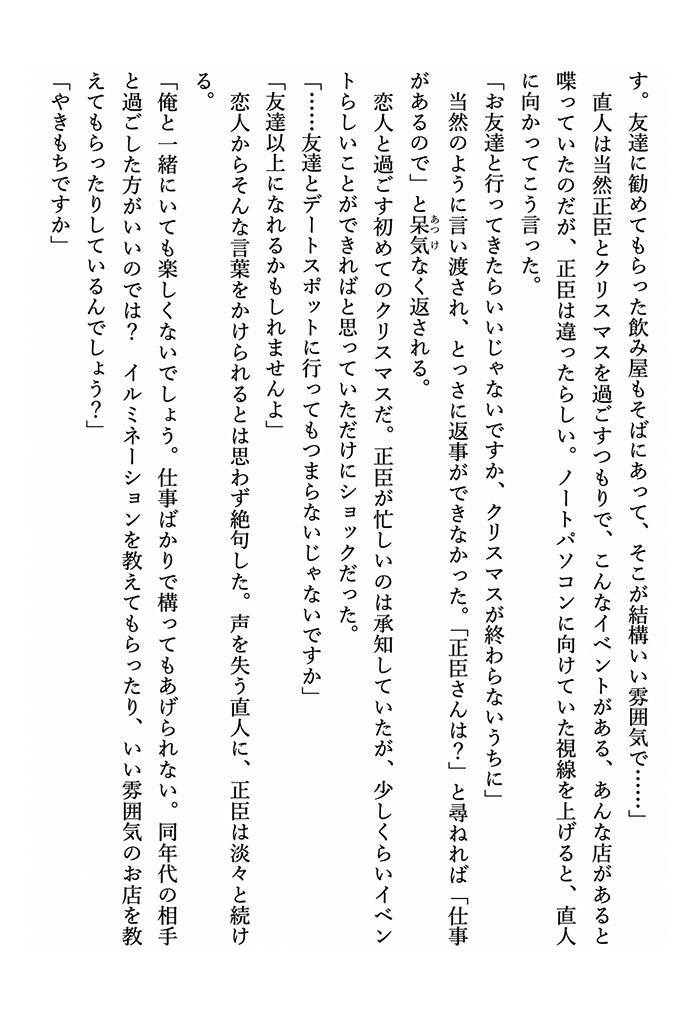 す。友達に勧めてもらった飲み屋もそばにあって、そこが結構いい雰囲気で……」
　直人は当然正臣とクリスマスを過ごすつもりで、こんなイベントがある、あんな店があると
喋っていたのだが、正臣は違ったらしい。ノートパソコンに向けていた視線を上げると、直人
に向かってこう言った。
「お友達と行ってきたらいいじゃないですか、クリスマスが終わらないうちに」
　当然のように言い渡され、とっさに返事ができなかった。「正臣さんは？」と尋ねれば「仕事
があるので」と呆気あつけなく返される。
　恋人と過ごす初めてのクリスマスだ。正臣が忙しいのは承知していたが、少しくらいイベン
トらしいことができればと思っていただけにショックだった。
「……友達とデートスポットに行ってもつまらないじゃないですか」
「友達以上になれるかもしれませんよ」
　恋人からそんな言葉をかけられるとは思わず絶句した。声を失う直人に、正臣は淡々と続け
る。
「俺と一緒にいても楽しくないでしょう。仕事ばかりで構ってもあげられない。同年代の相手
と過ごした方がいいのでは？　イルミネーションを教えてもらったり、いい雰囲気のお店を教
えてもらったりしているんでしょう？」
「やきもちですか」